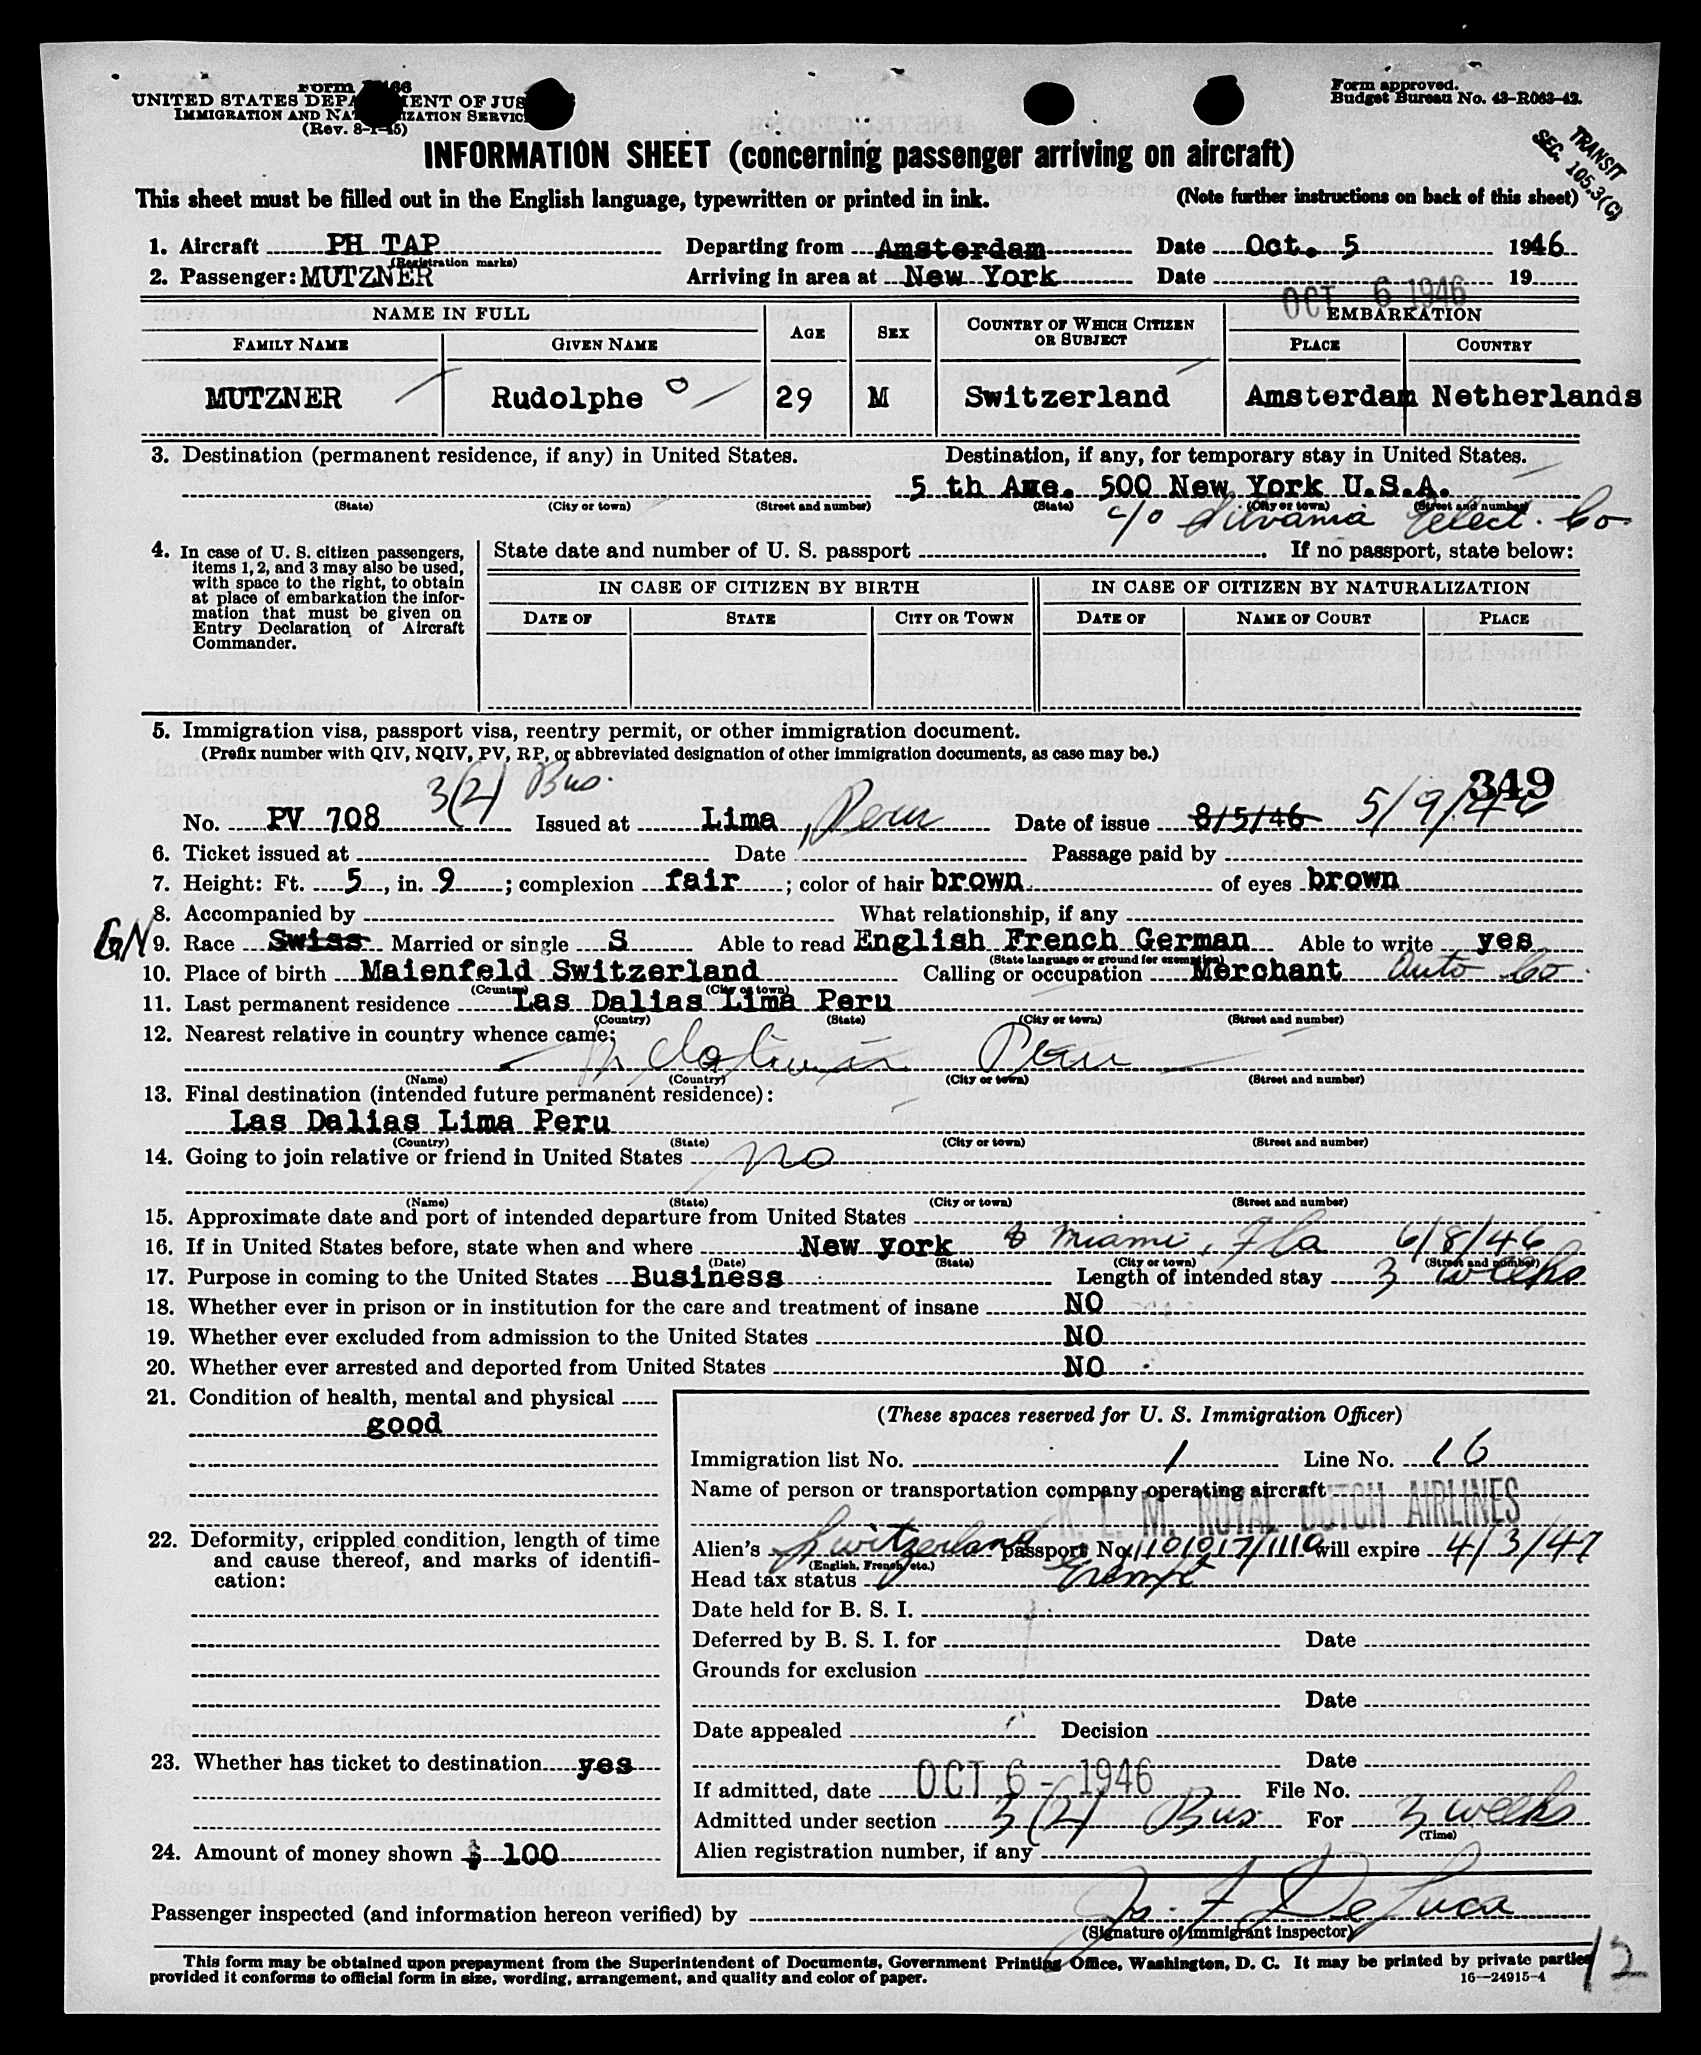 Form I-466
UNITED STATES DEPARTMENT OF JUSTICE
IMMIGRATION AND NATURALIZATION SERVICE
(Rev. 8-1-45)
Form approved.
Budget Bureau No. 43-R063-42.
TRANSIT
SEC. 105.3(C)
INFORMATION SHEET (concerning passenger arriving on aircraft)
This sheet must be filled out in the English language, typewritten or printed in ink. (Note further instructions on back of this sheet)
1. Aircraft PH TAP Departing from Amsterdam Date Oct. 5 1946
(Registration marks)
2. Passenger: MUTZNER Arriving in area at New York Date OCT 6 1946 19
NAME IN FULL AGE SEX COUNTRY OF WHICH CITIZEN OR SUBJECT EMBARKATION
FAMILY NAME GIVEN NAME PLACE COUNTRY
MUTZNER Rudolphe O 29 M Switzerland Amsterdam Netherlands
3. Destination (permanent residence, if any) in United States. Destination, if any, for temporary stay in United States.
5 th Ave. 500 New York U.S.A.
(State) (City or town) (Street and number) (State) (City or town) (Street and number)
c/o Silvania Elect. Co.
4. In case of U. S. citizen passengers, items 1, 2, and 3 may also be used, with space to the right, to obtain at place of embarkation the information that must be given on Entry Declaration of Aircraft Commander.
State date and number of U. S. passport . If no passport, state below:
IN CASE OF CITIZEN BY BIRTH IN CASE OF CITIZEN BY NATURALIZATION
DATE OF STATE CITY OR TOWN DATE OF NAME OF COURT PLACE
5. Immigration visa, passport visa, reentry permit, or other immigration document.
(Prefix number with QIV, NQIV, PV, RP, or abbreviated designation of other immigration documents, as case may be.)
3(2) Bus. 349
No. PV 708 Issued at Lima, Peru Date of issue 8/5/46 5/9/46
6. Ticket issued at Date Passage paid by
7. Height: Ft. 5, in. 9; complexion fair; color of hair brown of eyes brown
8. Accompanied by What relationship, if any
GN 9. Race Swiss Married or single S Able to read English French German Able to write yes
(State language or ground for exemption)
10. Place of birth Maienfeld Switzerland Calling or occupation Merchant Auto Co.
(Country) (City or town)
11. Last permanent residence Las Dalias Lima Peru
(Country) (State) (City or town) (Street and number)
12. Nearest relative in country whence came:
Peru
(Name) (Country) (City or town) (Street and number)
13. Final destination (intended future permanent residence):
Las Dalias Lima Peru
(Country) (State) (City or town) (Street and number)
14. Going to join relative or friend in United States no
(Name) (State) (City or town) (Street and number)
15. Approximate date and port of intended departure from United States
16. If in United States before, state when and where New york & Miami, Fla 6/8/46
(Date) (State) (City or town) (Street and number)
17. Purpose in coming to the United States Business Length of intended stay 3 weeks
18. Whether ever in prison or in institution for the care and treatment of insane NO
19. Whether ever excluded from admission to the United States NO
20. Whether ever arrested and deported from United States NO
21. Condition of health, mental and physical
good
22. Deformity, crippled condition, length of time and cause thereof, and marks of identification:
23. Whether has ticket to destination yes
24. Amount of money shown $ 100
(These spaces reserved for U. S. Immigration Officer)
Immigration list No. 1 Line No. 16
Name of person or transportation company operating aircraft
K. L. M. ROYAL DUTCH AIRLINES
Alien's Switzerland passport No. will expire 4/3/47
(English, French, etc.)
Head tax status Exempt
Date held for B. S. I.
Deferred by B. S. I. for Date
Grounds for exclusion
Date
Date appealed Decision
Date
If admitted, date OCT 6 - 1946 File No.
Admitted under section 3(2) Bus. For 3 weeks
(Time)
Alien registration number, if any
Passenger inspected (and information hereon verified) by Jos. F. DeLuca
(Signature of immigrant inspector)
This form may be obtained upon prepayment from the Superintendent of Documents, Government Printing Office, Washington, D. C. It may be printed by private parties
provided it conforms to official form in size, wording, arrangement, and quality and color of paper. 16—24915-4
12